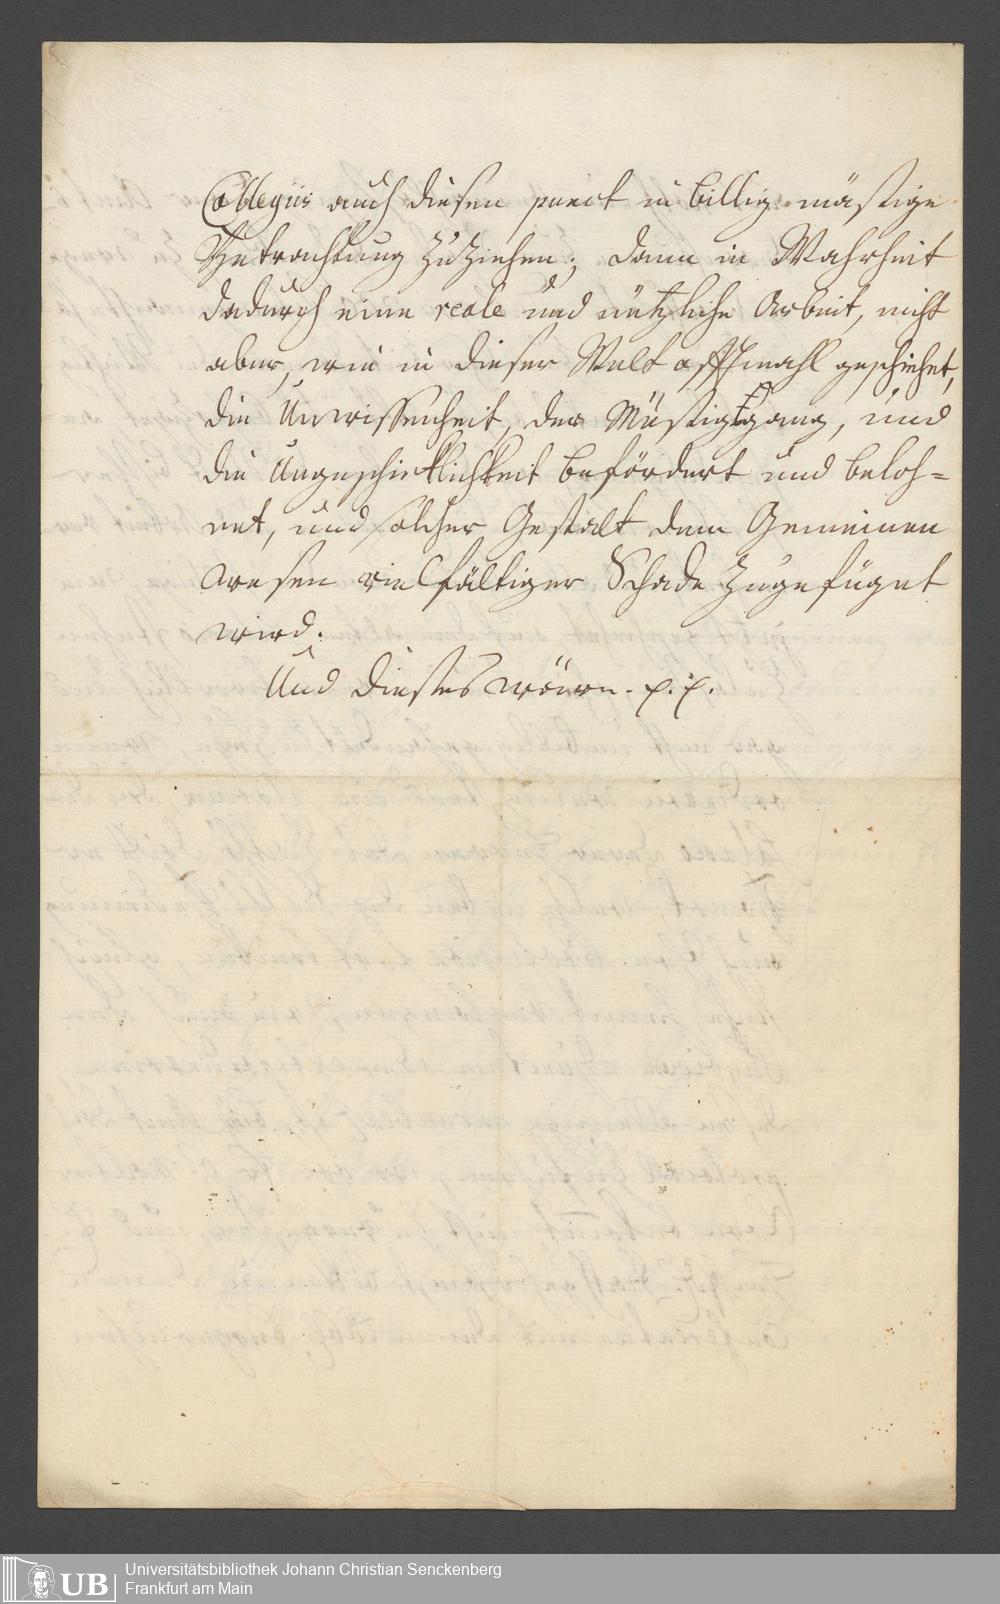 Collegiis auch diesen punct in billig mäsige
Betrachtung zu ziehen; dann in Wahrheit
dadurch eine reale und nützliche Arbeit, nicht
aber, wie in dieser Welt offtmahl geschiehet,
die Unwissenheit, der Müsiggang, und
die Ungeschicklichkeit befördert und beloh=
net, und solcher Gestalt dem Gemeinen
wesen vielfältiger Schade zugefüget
wird.
Und dieses wären. p. p.
UB
Universitätsbibliothek Johann Christian Senckenberg
Frankfurt am Main